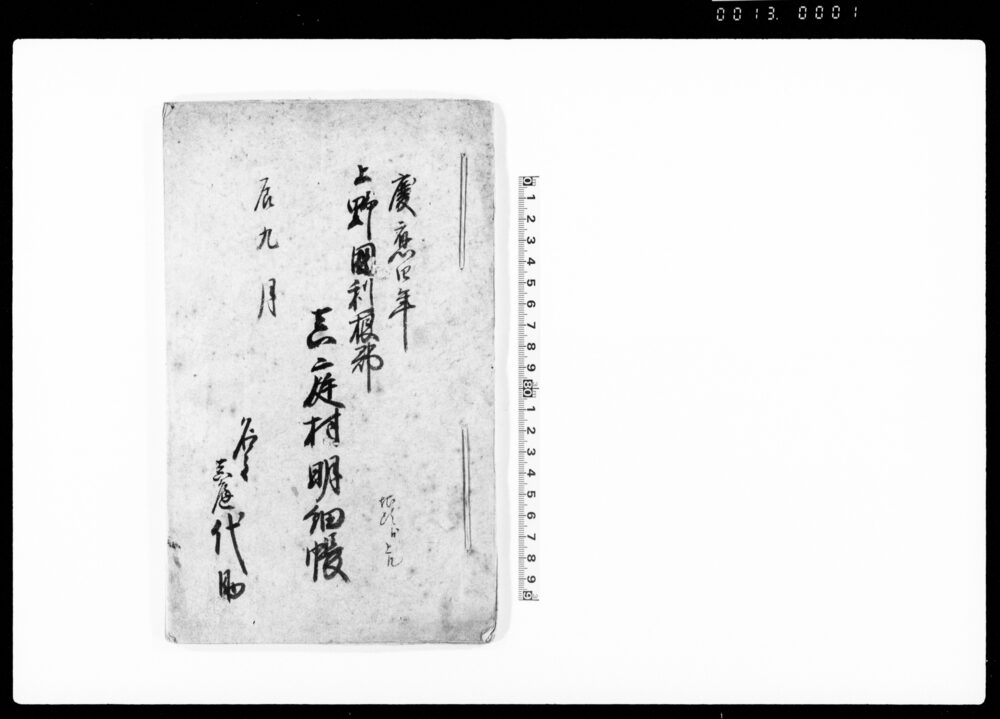 0013. 0001
慶應四年
上野國利根郡
真庭村明細帳
辰九月
名主
真庭代助
0 1 2 3 4 5 6 7 8 9 1 2 3 4 5 6 7 8 9